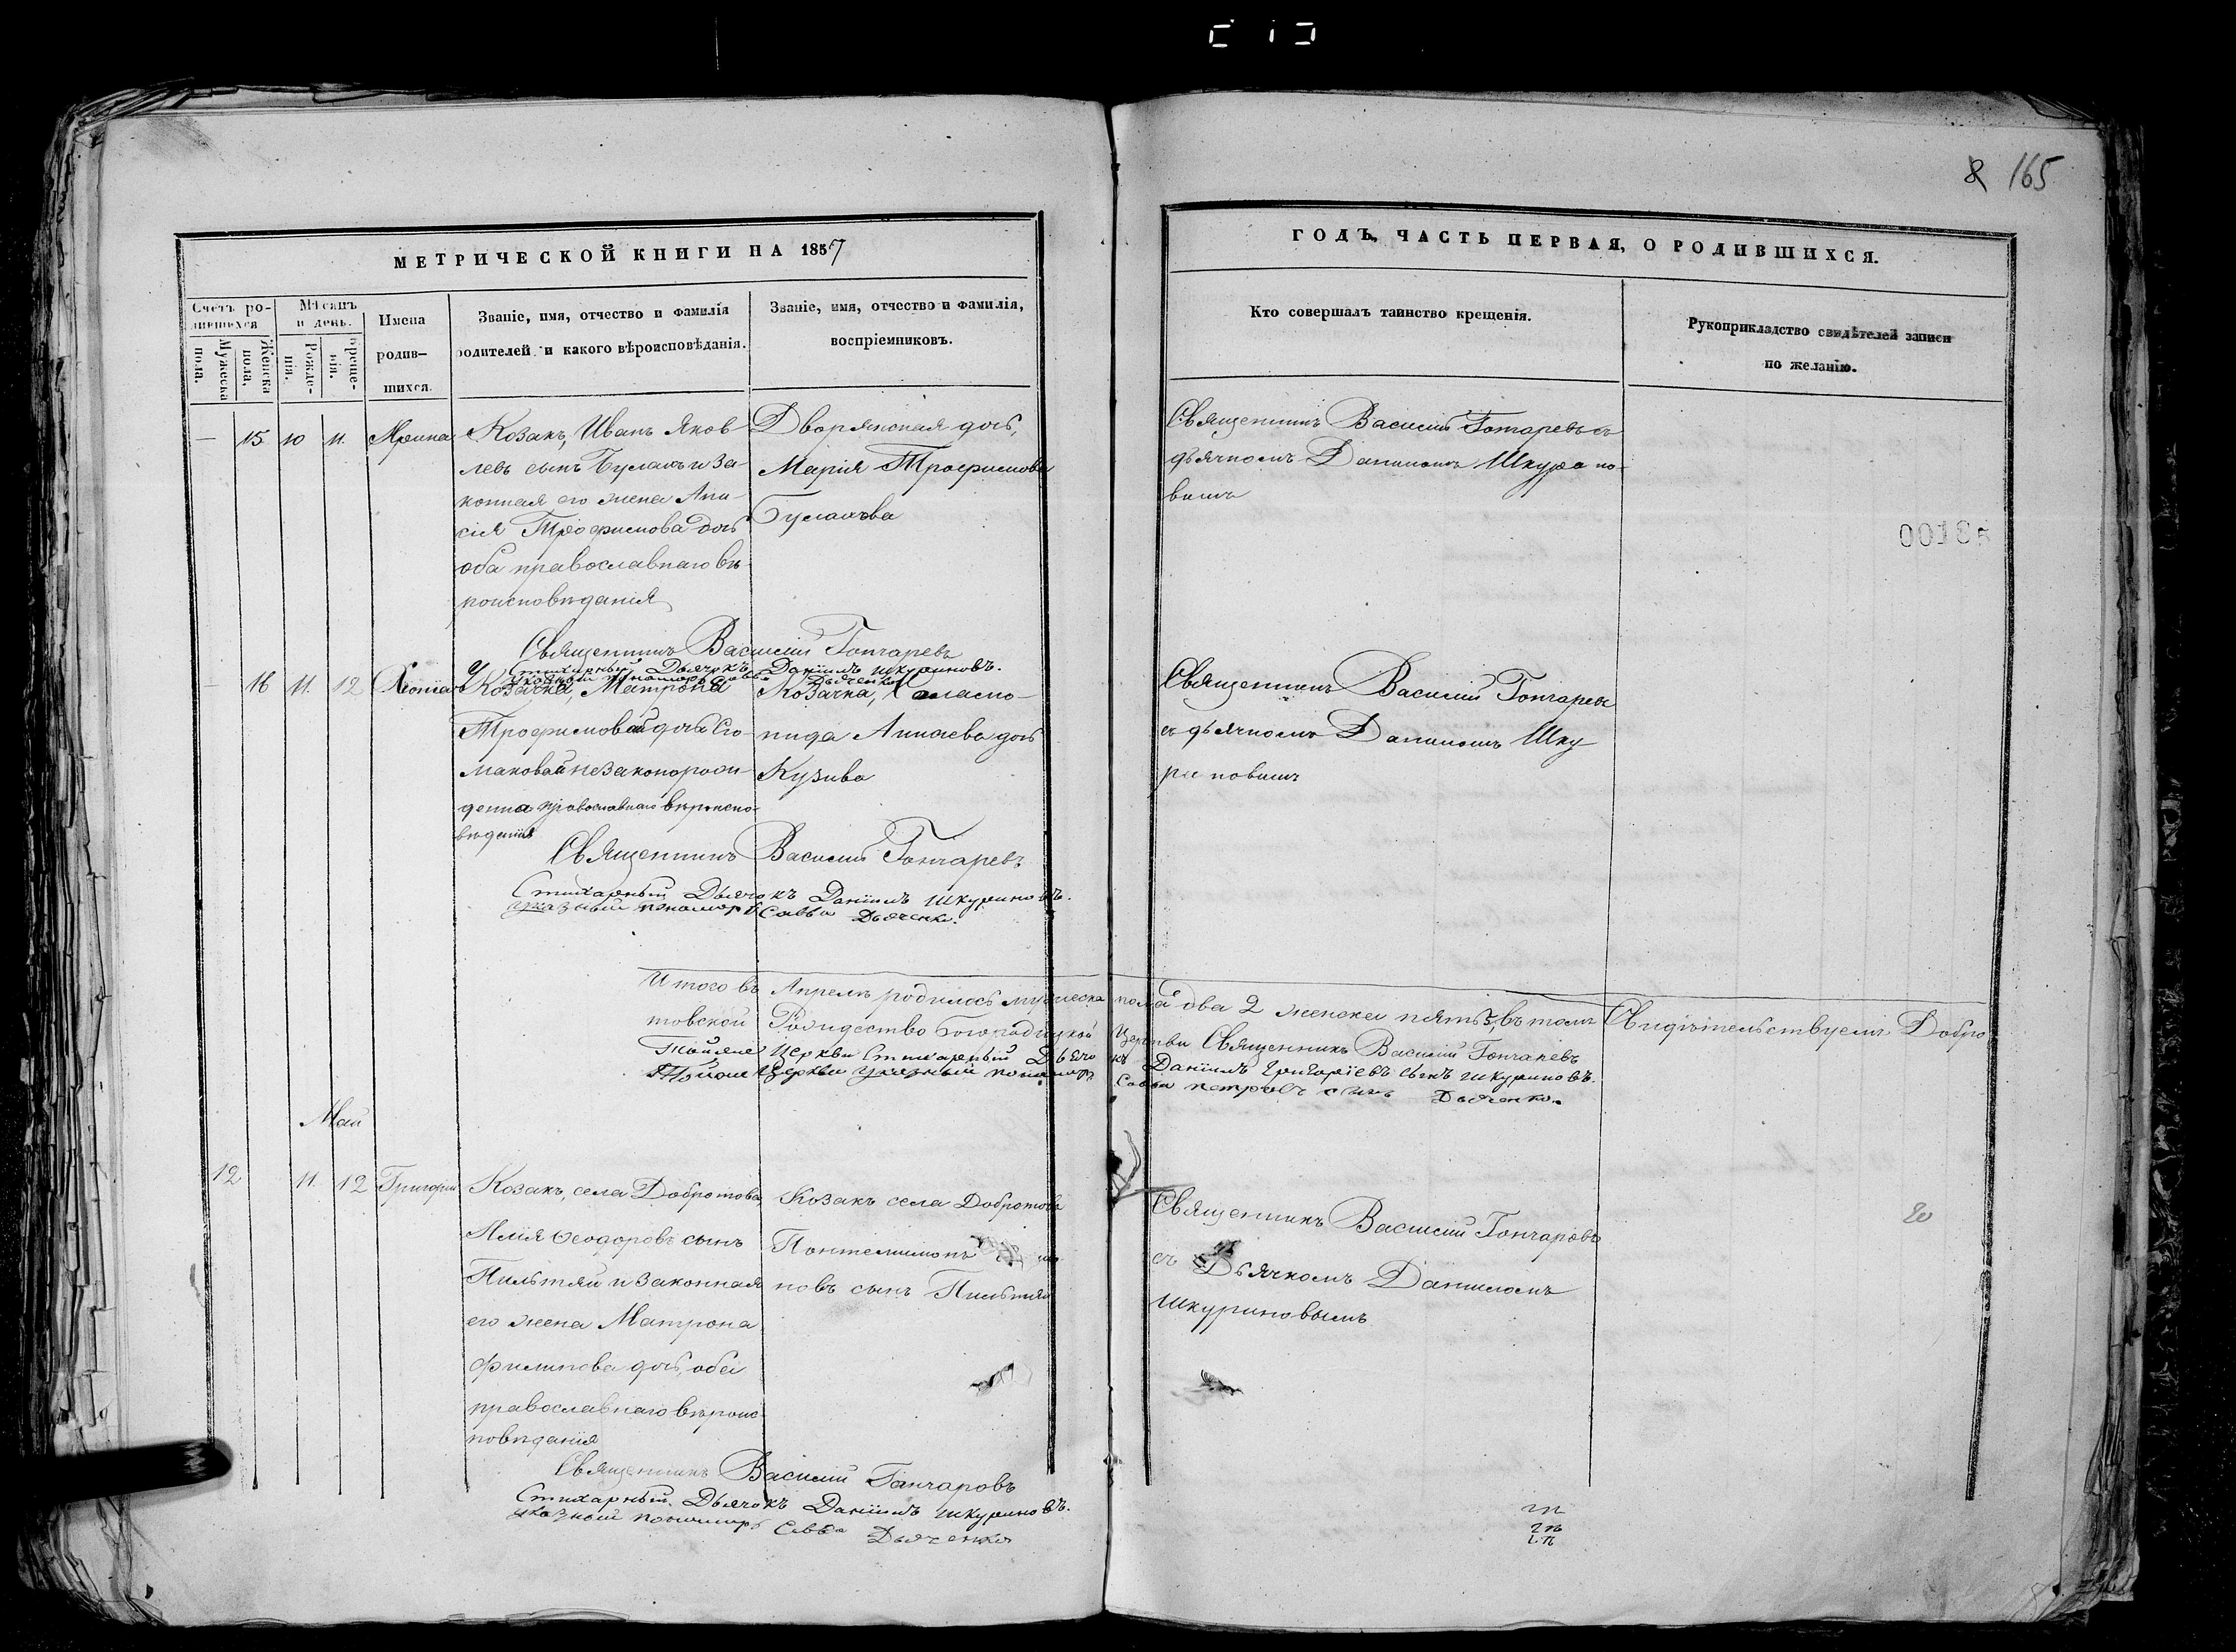 165
МЕТРИЧЕСКОЙ КНИГИ НА 1857
ГОДЪ, ЧАСТЬ ПЕРВАЯ, О РОДИВШИХСЯ.
Счетъ ро-
дившихся
Мужеска
пола.
Женска
пола.
Мѣсяцъ
и день.
Рожде-
нія.
Креще-
нія.
Имена
родив-
шихся.
Званіе, имя, отчество и фамилія
родителей и какого вѣроисповѣданія.
Званіе, имя, отчество и фамилія,
воспріемниковъ.
Кто совершалъ таинство крещенія.
Рукоприкладство свидѣтелей записи
по желанію.
00185
— 15 10 11. Ирина
Козакъ, Иванъ Яков
левъ сынъ Булахъ и За-
конная его жена Ани-
сія Трофимова дочь
оба православнаго вѣ-
роисповѣданія
Дворянская дочь,
Марія Трофимова
Булахова
Священникъ Василий Гончаревъ съ
дьячкомъ Даниломъ Шкурино-
вымъ
Священникъ Василий Гончаревъ
Стихарный Дьячокъ Даніилъ Шкуриновъ.
Указный пономарь Савва Дьяченко
16 11. 12
Козачка, Матрона
Трофимова дочь
незаконорож-
денна православнаго вѣроиспо-
вѣданія
Козачка,
дочь
Кузива
Священникъ Василий Гончаревъ
съ дьячкомъ Даниломъ Шку
риновымъ
Священникъ Василий Гончаревъ
Стихарный Дьячокъ Даніилъ Шкуриновъ.
указный пономарь Савва Дьяченко.
Итого въ Апрелѣ родилось мужеска пола два 2 женска пять 5, въ томъ Свидѣтельствуемъ Добро
товской Рождество Богородицкой Церкви Священникъ Василій Гончаревъ
Тойже Церкви Стихарный Дьячокъ Даніилъ Григоріевъ сынъ Шкуриновъ.
Тойже Церкви указный пономарь Савва Петровъ сынъ Дьяченко.
Май
12 11. 12 Григорій
Козакъ, села Добротова,
Илія Ѳеодоровъ сынъ
Пильтяй и Законная
его жена Матрона
Филипова дочь, оба
православнаго вѣроис-
повѣданія
Козакъ села Добротова
Пантелимонъ
новъ сынъ Пильтяй
Священникъ Василий Гончаровъ
съ Дьячкомъ Даниломъ
Шкуриновымъ
20
Священникъ Василий Гончаровъ
Стихарный Дьячокъ Даніилъ Шкуриновъ.
указный пономарь Савва Дьяченко